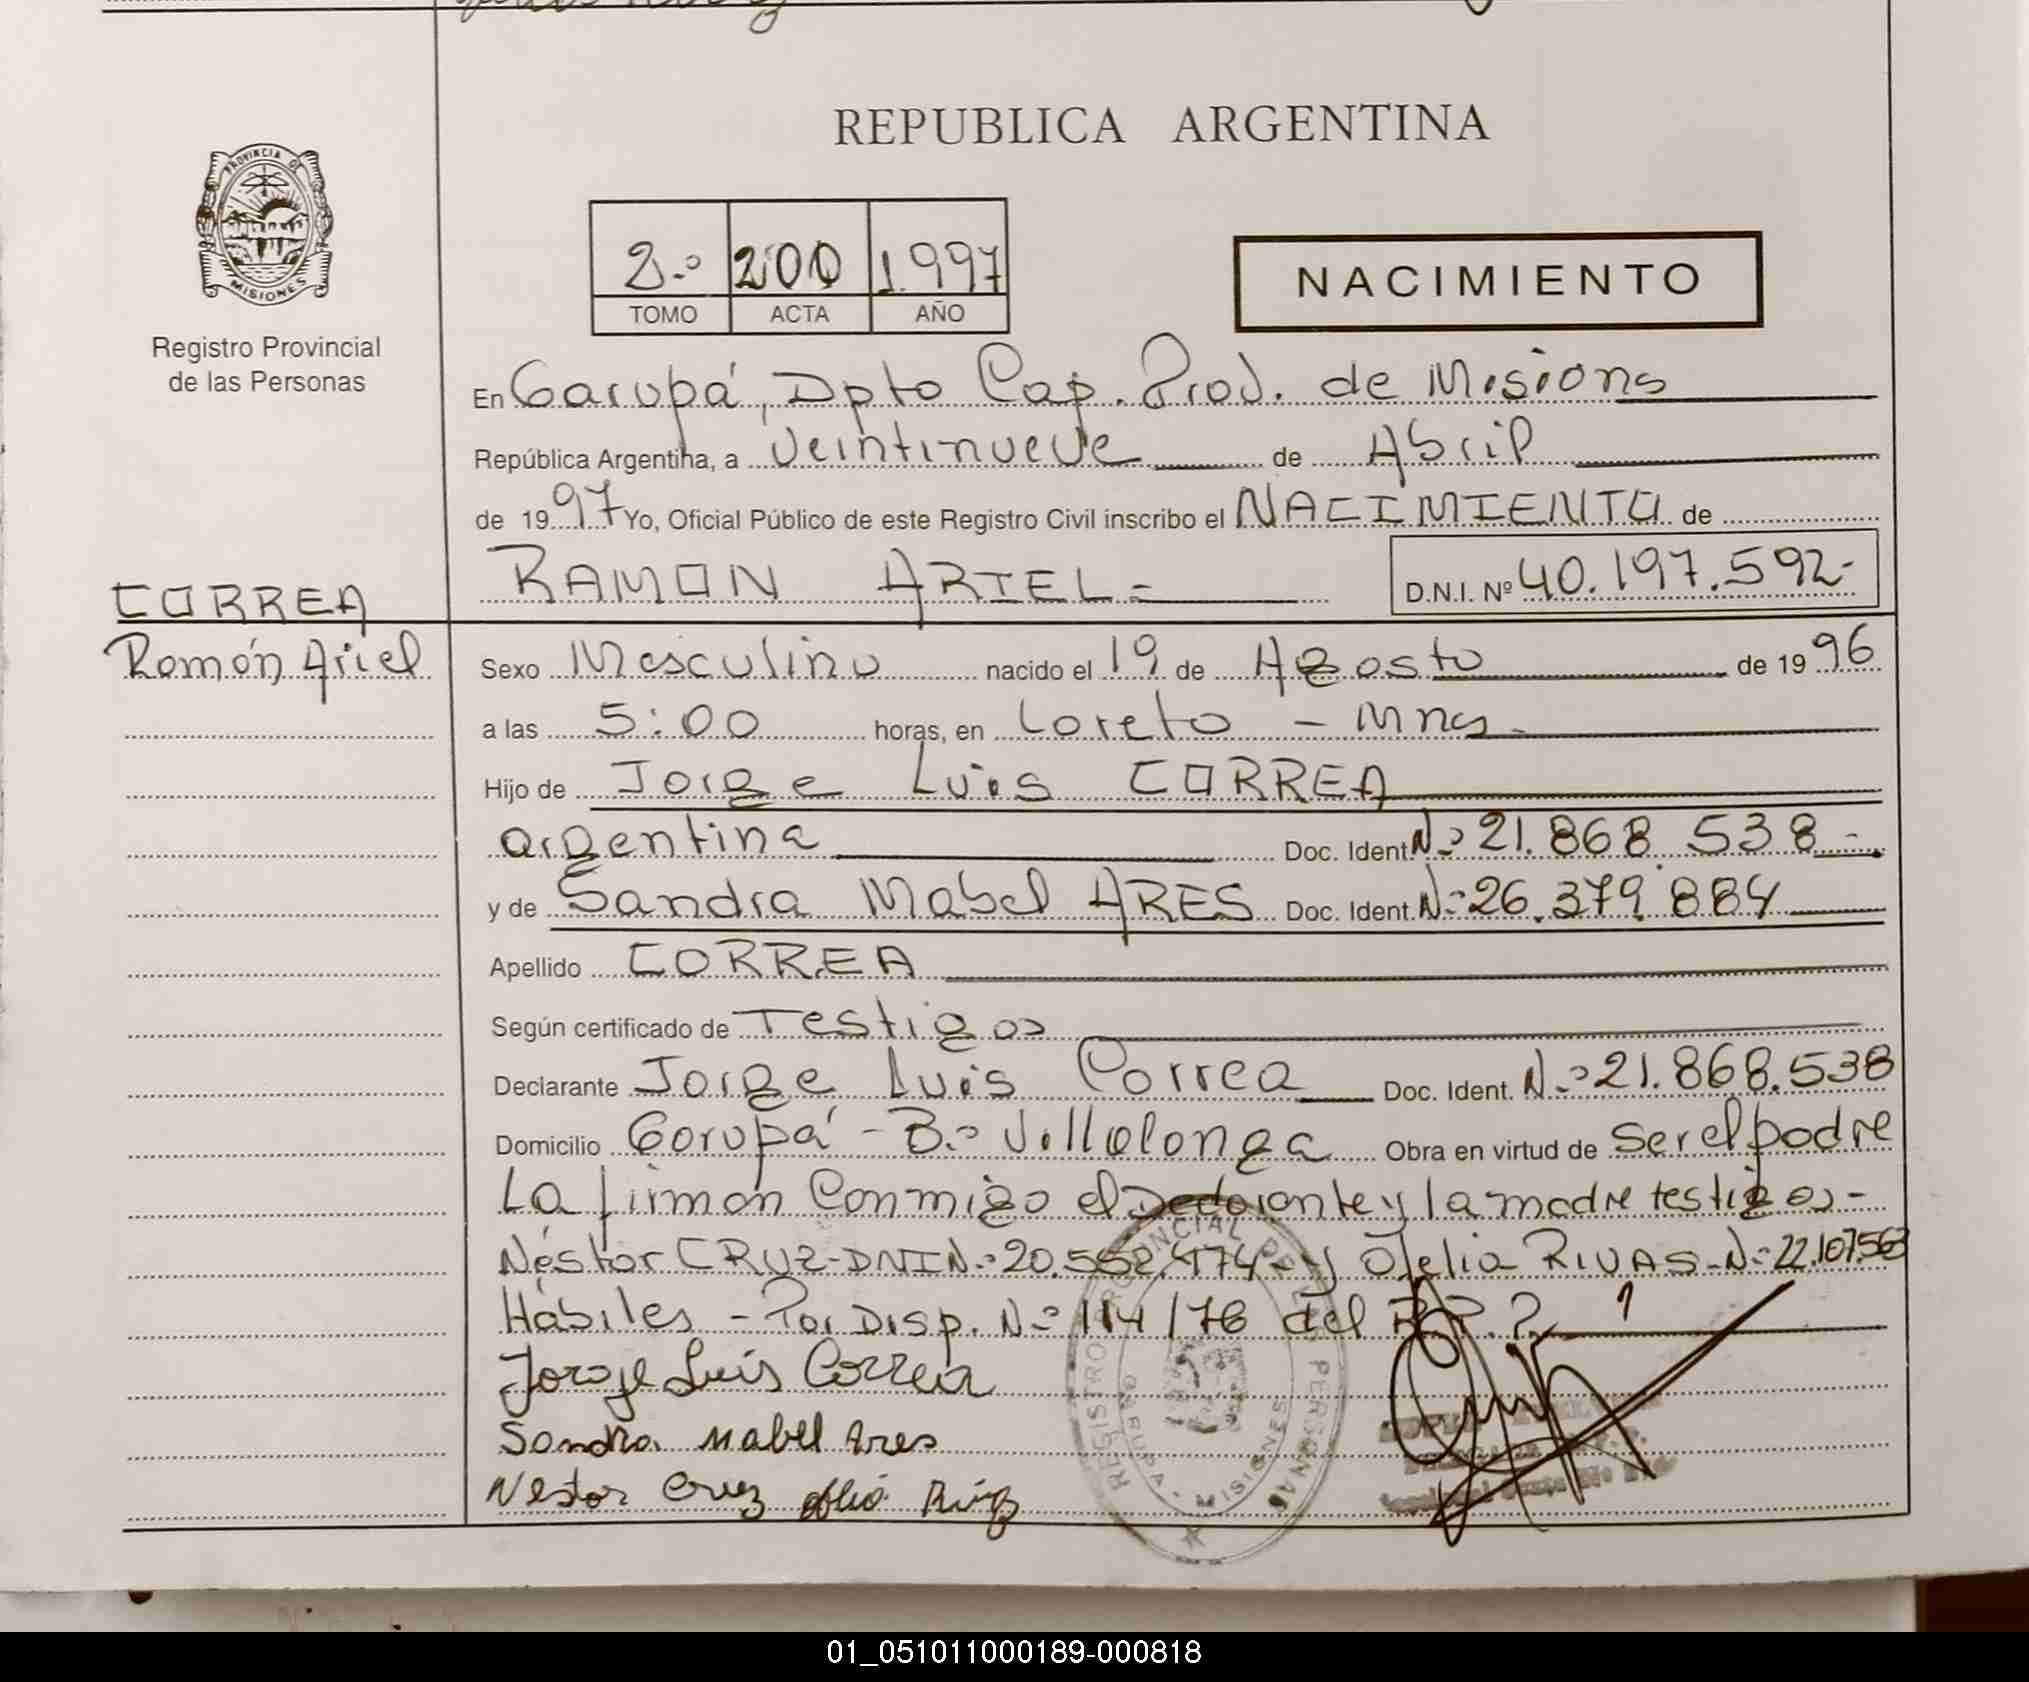 REPUBLICA ARGENTINA
PROVINCIA DE
MISIONES
Registro Provincial
de las Personas
2.º 200 1997
TOMO ACTA AÑO
NACIMIENTO
En Garupá, Dpto Cap. Prov. de Misions
República Argentina, a veintinueve de Abril
de 1997 Yo, Oficial Público de este Registro Civil inscribo el NACIMIENTO de
RAMON ARIEL=
D.N.I. Nº 40.197.592-
CORREA
Ramón Ariel
Sexo Masculino nacido el 19 de Agosto de 1996
a las 5:00 horas, en Loreto - Mnes.
Hijo de Jorge Luis CORREA
argentina Doc. Ident. N.º 21.868.538-
y de Sandra Mabel ARES Doc. Ident. N.º 26.379.884
Apellido CORREA
Según certificado de Testigos
Declarante Jorge Luis Correa Doc. Ident. N.º 21.868.538
Domicilio Garupá - B.º Villalonga Obra en virtud de ser el padre
La firman conmigo el Declarante y la madre testigos-
Néstor CRUZ-DNI N.º 20.552.474- y Ofelia RIVAS-N.º 22.107.563
Hábiles - Por Disp. N.º 114/76 del R.P.P.
Jorge Luis Correa
Sandra Mabel Ares
Nestor Cruz
REGISTRO PROVINCIAL DE LAS PERSONAS
GARUPA - MISIONES
01_051011000189-000818